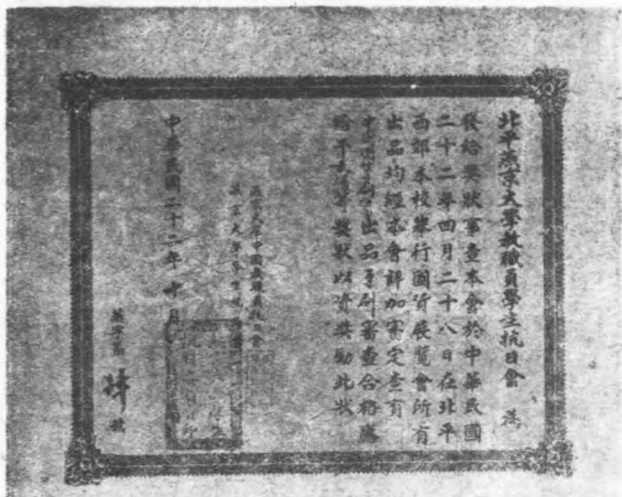 北平燕京大學教職員學生抗日會 為
發給獎狀事查本會於中華民國
二十二年四月二十八日在北平
西郊本校舉行國貨展覽會所有
出品均經本會詳加審定查有
出品牙刷審查合格應
給予 等獎狀以資獎勵此狀
燕京大學中國教職員抗日會
燕京大學學生抗日會
中華民國二十二年 十 月
燕字第 號